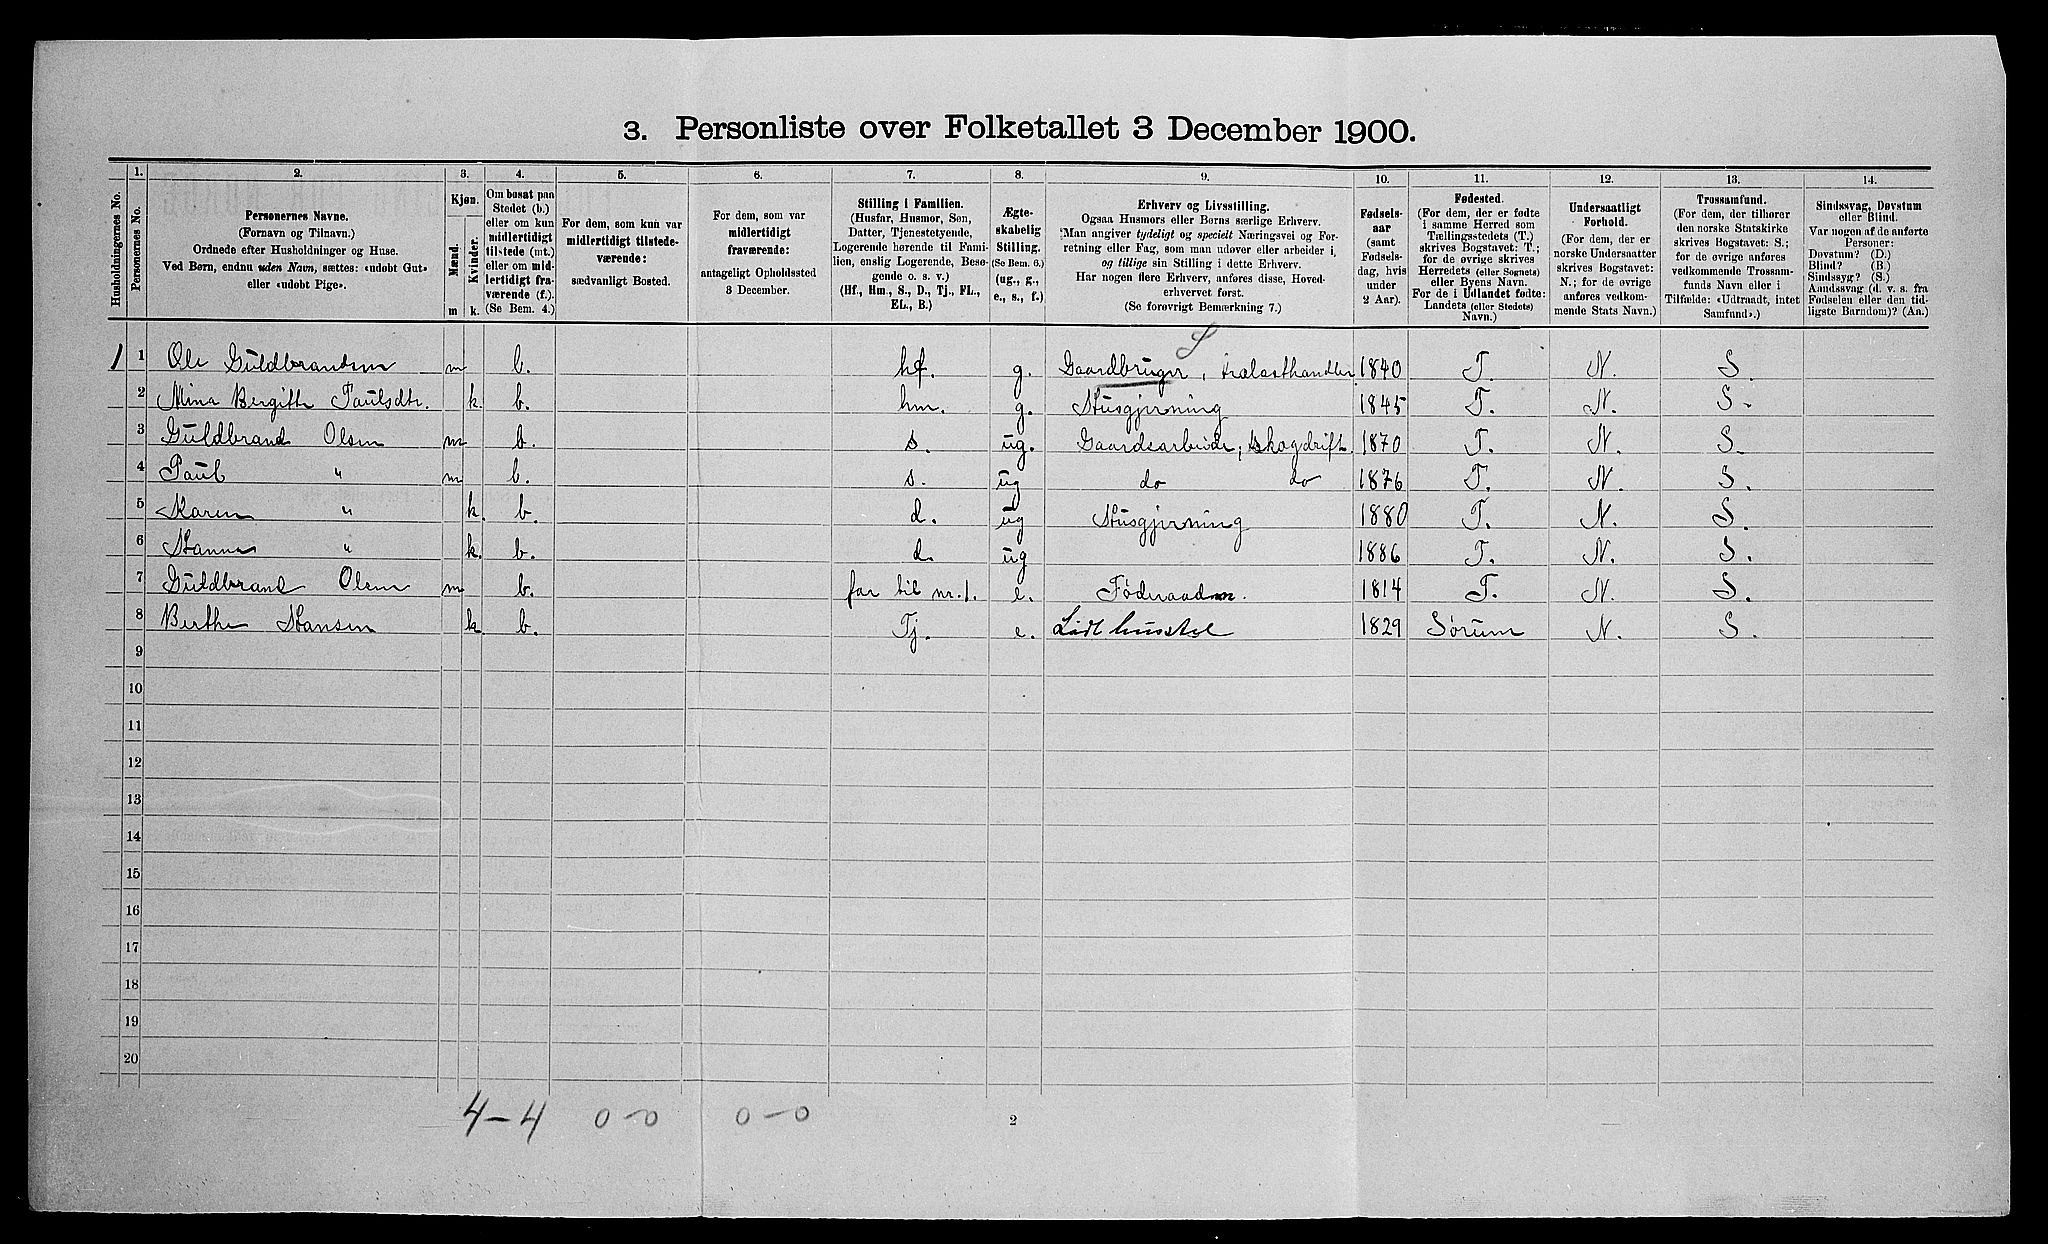 3. Personliste over Folketallet 3 December 1900.
Husholdningernes No.
1.
Personernes No.
2.
Personernes Navne.
(Fornavn og Tilnavn.)
Ordnede efter Husholdninger og Huse.
Ved Børn, endnu uden Navn, sættes: «udøbt Gut»
eller «udøbt Pige».
3.
Kjøn.
Mænd.
Kvinder.
m k.
4.
Om bosat paa
Stedet (b.)
eller om kun
midlertidigt
tilstede (mt.)
eller om mid-
lertidigt fra-
værende (f.).
(Se Bem. 4.)
5.
For dem, som kun var
midlertidigt tilstede-
værende:
sædvanligt Bosted.
6.
For dem, som var
midlertidigt
fraværende:
antageligt Opholdssted
3 December.
7.
Stilling i Familien.
(Husfar, Husmor, Søn,
Datter, Tjenestetyende,
Logerende hørende til Fami-
lien, enslig Logerende, Besø-
gende o. s. v.)
(Hf., Hm., S., D., Tj., FL.,
EL., B.)
8.
Ægte-
skabelig
Stilling.
(Se Bem. 6.)
(ug., g.,
e., s., f.)
9.
Erhverv og Livsstilling.
Ogsaa Husmors eller Børns særlige Erhverv.
Man angiver tydeligt og specielt Næringsvei og For-
retning eller Fag, som man udøver eller arbeider i,
og tillige sin Stilling i dette Erhverv.
Har nogen flere Erhverv, anføres disse, Hoved-
erhvervet først.
(Se forøvrigt Bemærkning 7.)
10.
Fødsels-
aar
(samt
Fødsels-
dag, hvis
under
2 Aar).
11.
Fødested.
(For dem, der er fødte
i samme Herred som
Tællingsstedets (T.)
skrives Bogstavet: T.;
for de øvrige skrives
Herredets (eller Sognets)
eller Byens Navn.
For de i Udlandet fødte:
Landets (eller Stedets)
Navn.)
12.
Undersaatligt
Forhold.
(For dem, der er
norske Undersaatter
skrives Bogstavet:
N.; for de øvrige
anføres vedkom-
mende Stats Navn.)
13.
Trossamfund.
(For dem, der tilhører
den norske Statskirke
skrives Bogstavet: S.;
for de øvrige anføres
vedkommende Trossam-
funds Navn eller i
Tilfælde: «Udtraadt, intet
Samfund».)
14.
Sindssvag, Døvstum
eller Blind.
Var nogen af de anførte
Personer:
Døvstum? (D.)
Blind? (B.)
Sindssyg? (S.)
Aandssvag (d. v. s. fra
Fødselen eller den tid-
ligste Barndom)? (Aa.)
S
1 1 Ole Guldbrandsen m b. hf. g. Gaardbruger, trælasthandler 1840 T. N. S.
2 Mina Bergitte Paulsdtr. k. b. hm. g. Husgjerning 1845 T. N. S.
3 Guldbrand Olsen m b. s. ug. Gaardsarbeide, skogdrift. 1870 T. N. S.
4 Paul " m b. s. ug do do 1876 T. N. S.
5 Karen " k. b. d. ug Husgjerning 1880 T. N. S.
6 Hanna " k. b. d. ug 1886 T. N. S.
7 Guldbrand Olsen m b. far til nr. 1. e. Føderaadm. 1814 T. N. S.
8 Berthe Hansen k b. Tj. e. husstel 1829 Sørum N. S.
9
10
11
12
13
14
15
16
17
18
19
20
4-4 0-0 0-0
2